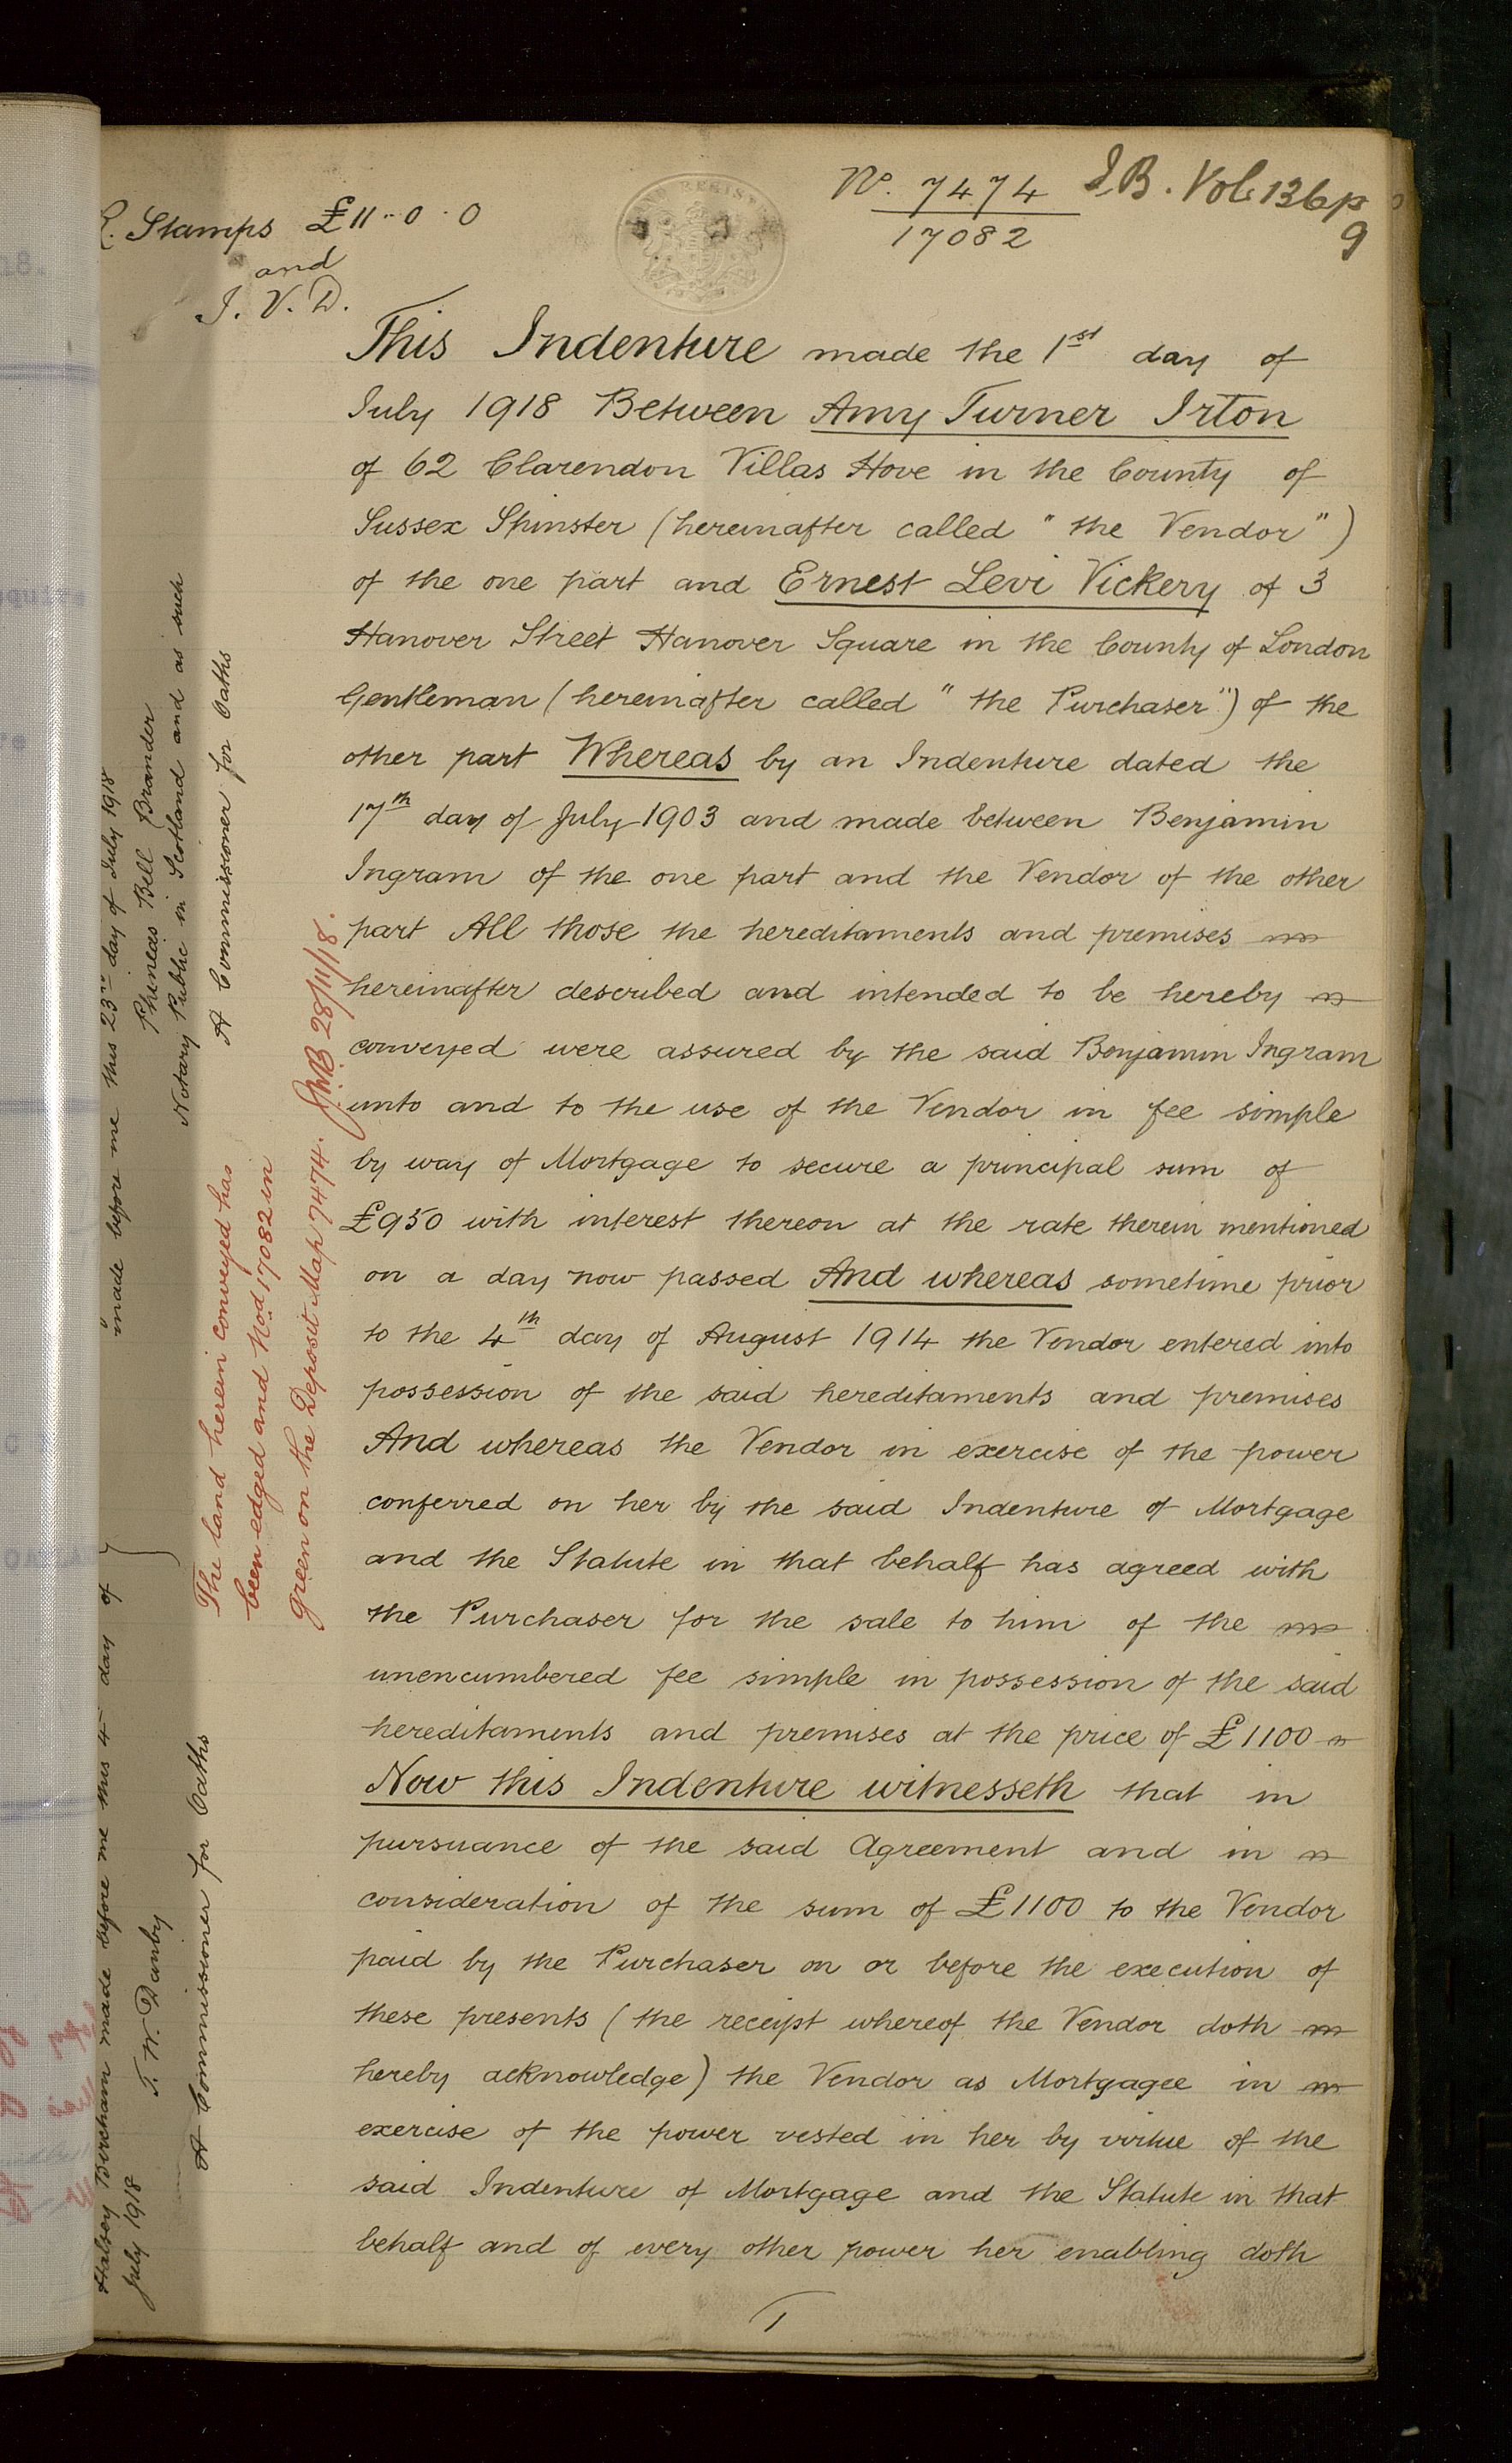 Stamps £11..0.0
and
I. V. D.
LAND REGISTRY
No. 7474
17082
I.B. Vol. 136 p
9
This Indenture made the 1st day of
July 1918 Between Amy Turner Irton
of 62 Clarendon Villas Hove in the County of
Sussex Spinster (hereinafter called "the Vendor")
of the one part and Ernest Levi Vickery of 3
Hanover Street Hanover Square in the County of London
Gentleman (hereinafter called "the Purchaser") of the
other part Whereas by an Indenture dated the
17th day of July 1903 and made between Benjamin
Ingram of the one part and the Vendor of the other
part All those the hereditaments and premises
hereinafter described and intended to be hereby
conveyed were assured by the said Benjamin Ingram
unto and to the use of the Vendor in fee simple
by way of Mortgage to secure a principal sum of
£950 with interest thereon at the rate therein mentioned
on a day now passed And whereas sometime prior
to the 4th day of August 1914 the Vendor entered into
possession of the said hereditaments and premises
And whereas the Vendor in exercise of the power
conferred on her by the said Indenture of Mortgage
and the Statute in that behalf has agreed with
the Purchaser for the sale to him of the
unencumbered fee simple in possession of the said
hereditaments and premises at the price of £1100
Now this Indenture witnesseth that in
pursuance of the said Agreement and in
consideration of the sum of £1100 to the Vendor
paid by the Purchaser on or before the execution of
these presents (the receipt whereof the Vendor doth
hereby acknowledge) the Vendor as Mortgagee in
exercise of the power vested in her by virtue of the
said Indenture of Mortgage and the Statute in that
behalf and of every other power her enabling doth
1
made before me this 23rd day of July 1918
Phineas Bell Brander
Notary Public in Scotland and as such
A Commissioner for Oaths
The land herein conveyed has
been edged and Nod. 17082 in
green on the Deposit Map 7474.
28/11/18.
Halsey Bircham made before me this 4th day of
July 1918
T. W. Danby
A Commissioner for Oaths